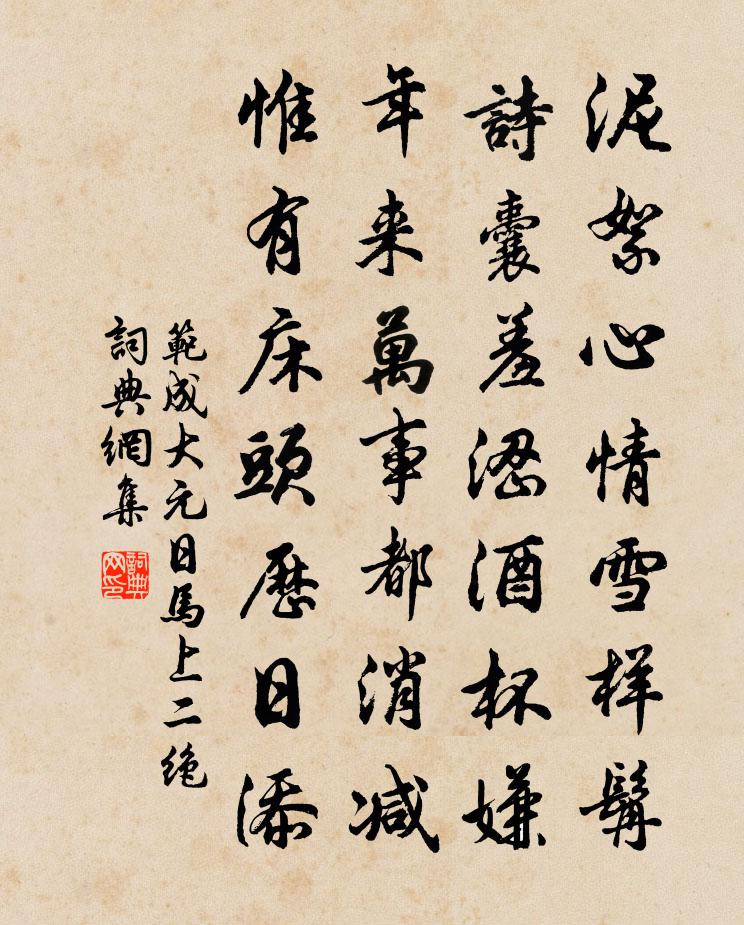 泥絮心情雪样鬓
詩囊羞澀酒杯嫌
年来萬事都消减
惟有床頭歷日添
範成大元日馬上二绝
詞典網集
詞典網印